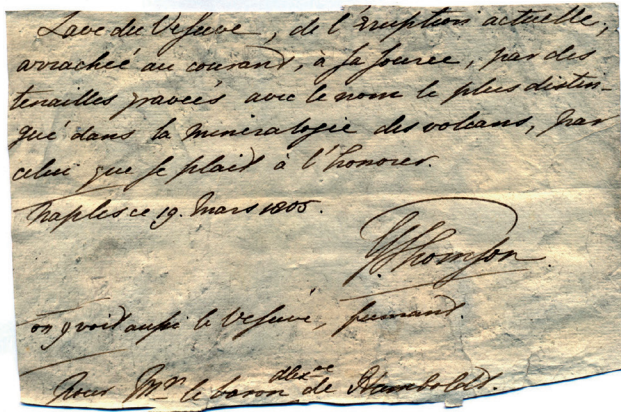 Lave du Vesuve, de l'éruption actuelle,
arrachée au courand, à sa source, par des
tenailles gravées avec le nom le plus distin-
gué dans la minéralogie des volcans, par
celui que se plaid à l'honorer.
Naples ce 19. Mars 1805.
G. Thomson
on y voit aussi le Vesuve, fumand.
Pour Mr. le baron Alexre de Humboldt.